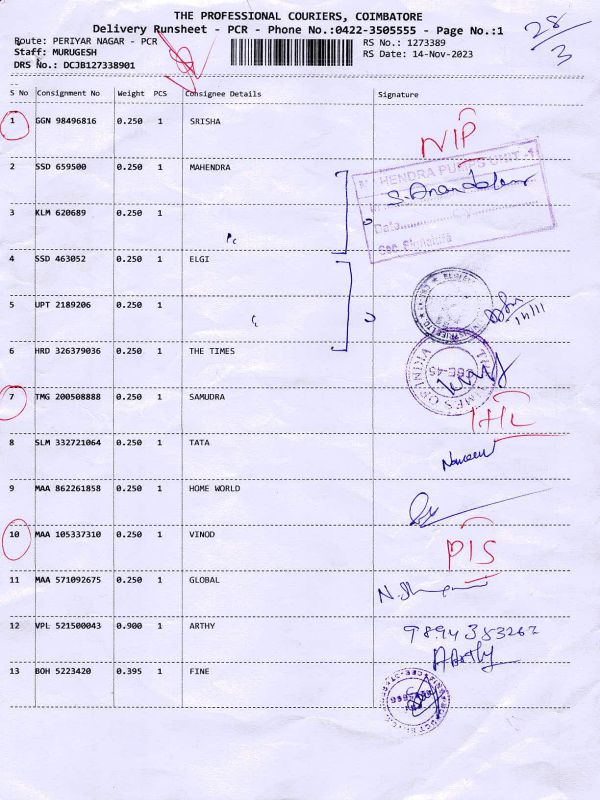 THE PROFESSIONAL COURIERS, COIMBATORE
Delivery Runsheet - PCR - Phone No.:0422-3505555 - Page No.:1
28/3
Route: PERIYAR NAGAR - PCR RS No.: 1273389
Staff: MURUGESH RS Date: 14-Nov-2023
DRS No.: DCJB127338901
S No Consignment No Weight PCS Consignee Details Signature
1 GGN 98496816 0.250 1 SRISHA
NIP
2 SSD 659500 0.250 1 MAHENDRA
MAHENDRA PUMPS UNIT
Date
3 KLM 620689 0.250 1
4 SSD 463052 0.250 1 ELGI
5 UPT 2189206 0.250 1
14/11
6 HRD 326379036 0.250 1 THE TIMES
TIMES OF INDIA
7 TMG 200508888 0.250 1 SAMUDRA
8 SLM 332721064 0.250 1 TATA
Naveen
9 MAA 862261858 0.250 1 HOME WORLD
10 MAA 105337310 0.250 1 VINOD
PIS
11 MAA 571092675 0.250 1 GLOBAL
12 VPL 521500043 0.900 1 ARTHY
9894383262
Aarthy
13 BOH 5223420 0.395 1 FINE